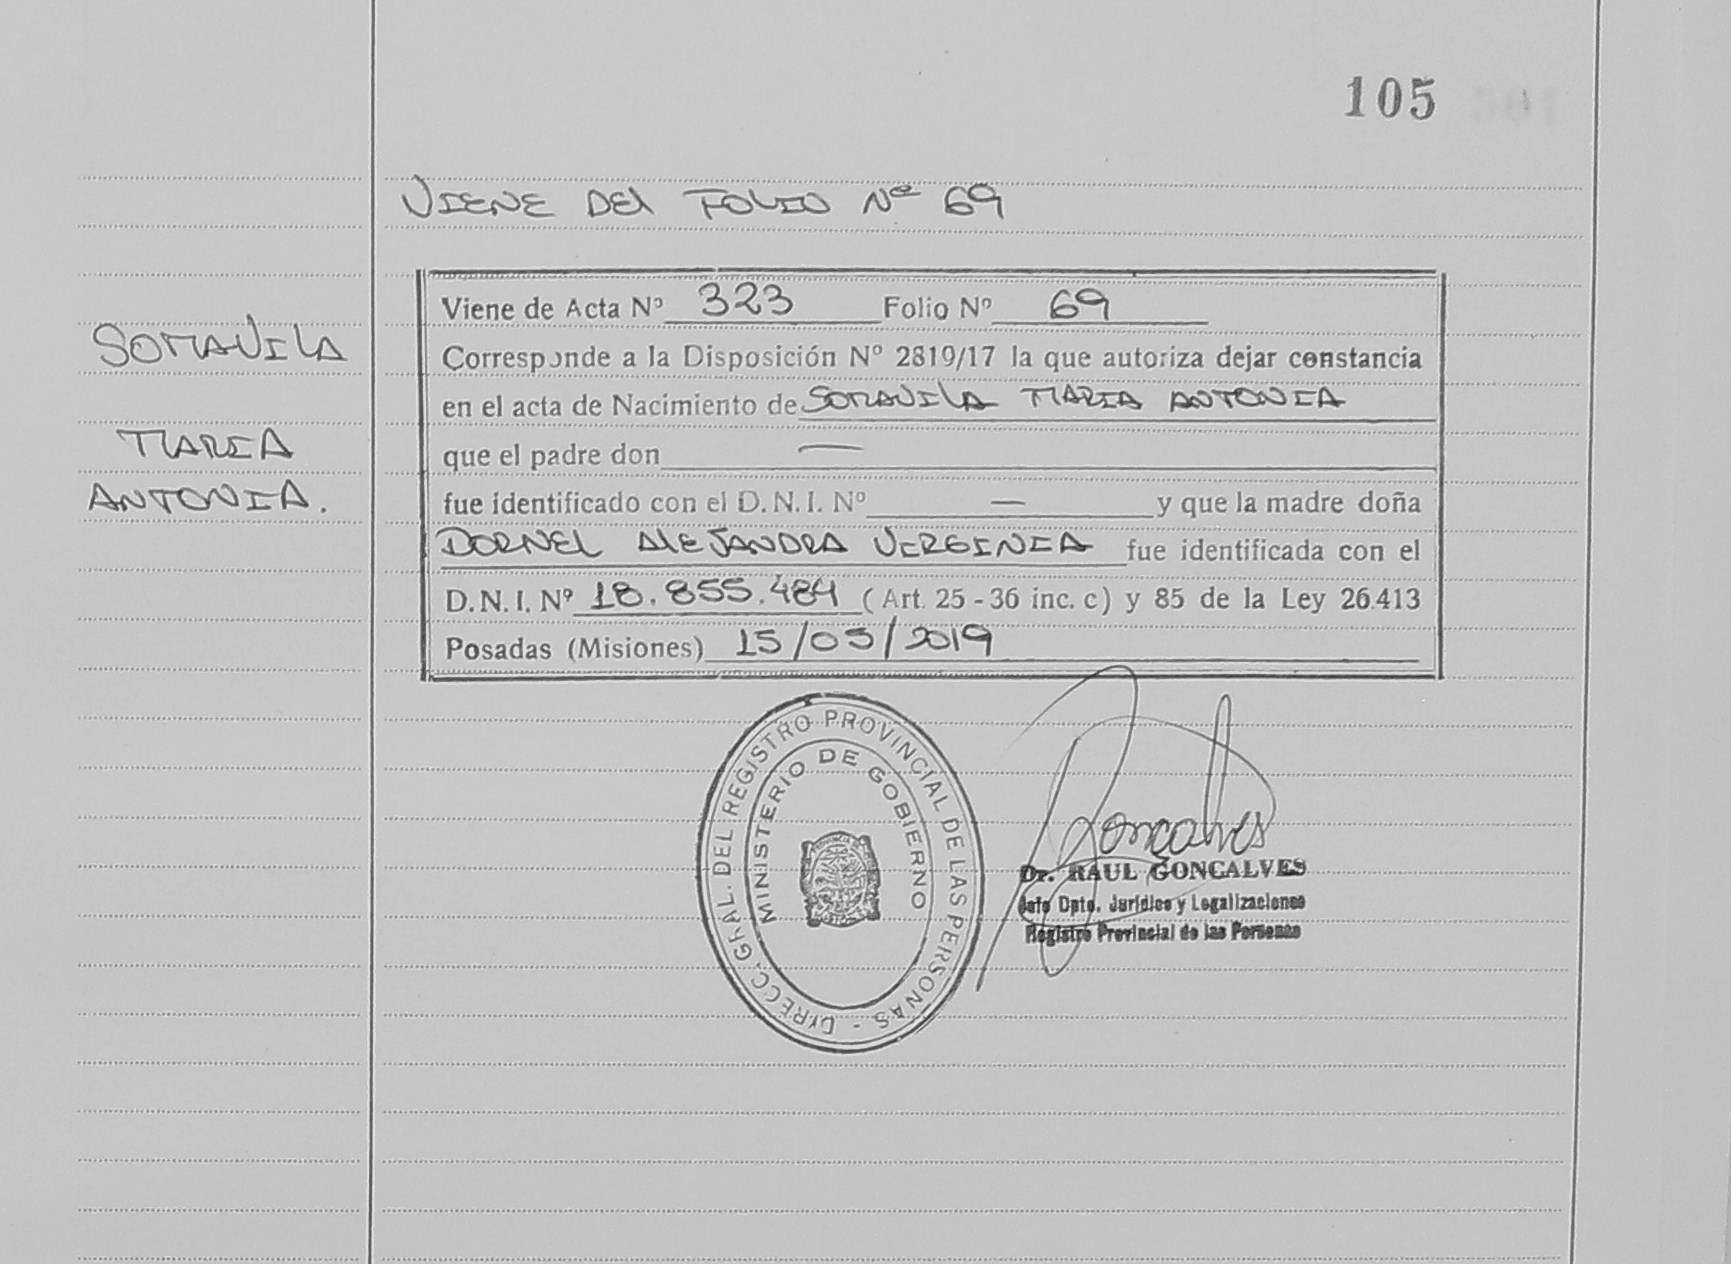 105
VIENE DEL FOLIO Nº 69
SOMAVILA
MARIA
ANTONIA.
Viene de Acta Nº 323 Folio Nº 69
Corresponde a la Disposición Nº 2819/17 la que autoriza dejar constancia
en el acta de Nacimiento de SOMAVILA MARIA ANTONIA
que el padre don —
fue identificado con el D.N.I. Nº — y que la madre doña
DORNEL ALEJANDRA VERGINIA fue identificada con el
D.N.I. Nº 18.855.484 (Art. 25 - 36 inc. c) y 85 de la Ley 26.413
Posadas (Misiones) 15/05/2019
DIRECC. GRAL. DEL REGISTRO PROVINCIAL DE LAS PERSONAS -
MINISTERIO DE GOBIERNO
Goncalves
Dr. RAUL GONCALVES
Jefe Dpto. Jurídico y Legalizaciones
Registro Provincial de las Personas